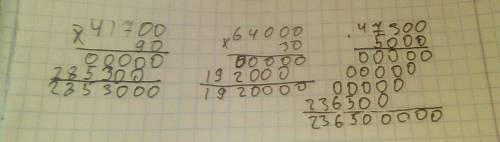 × 41700
90
00000
285300
2853000
× 64000
30
00000
192000
1920000
· 47300
5000
00000
00000
00000
236500
236500000